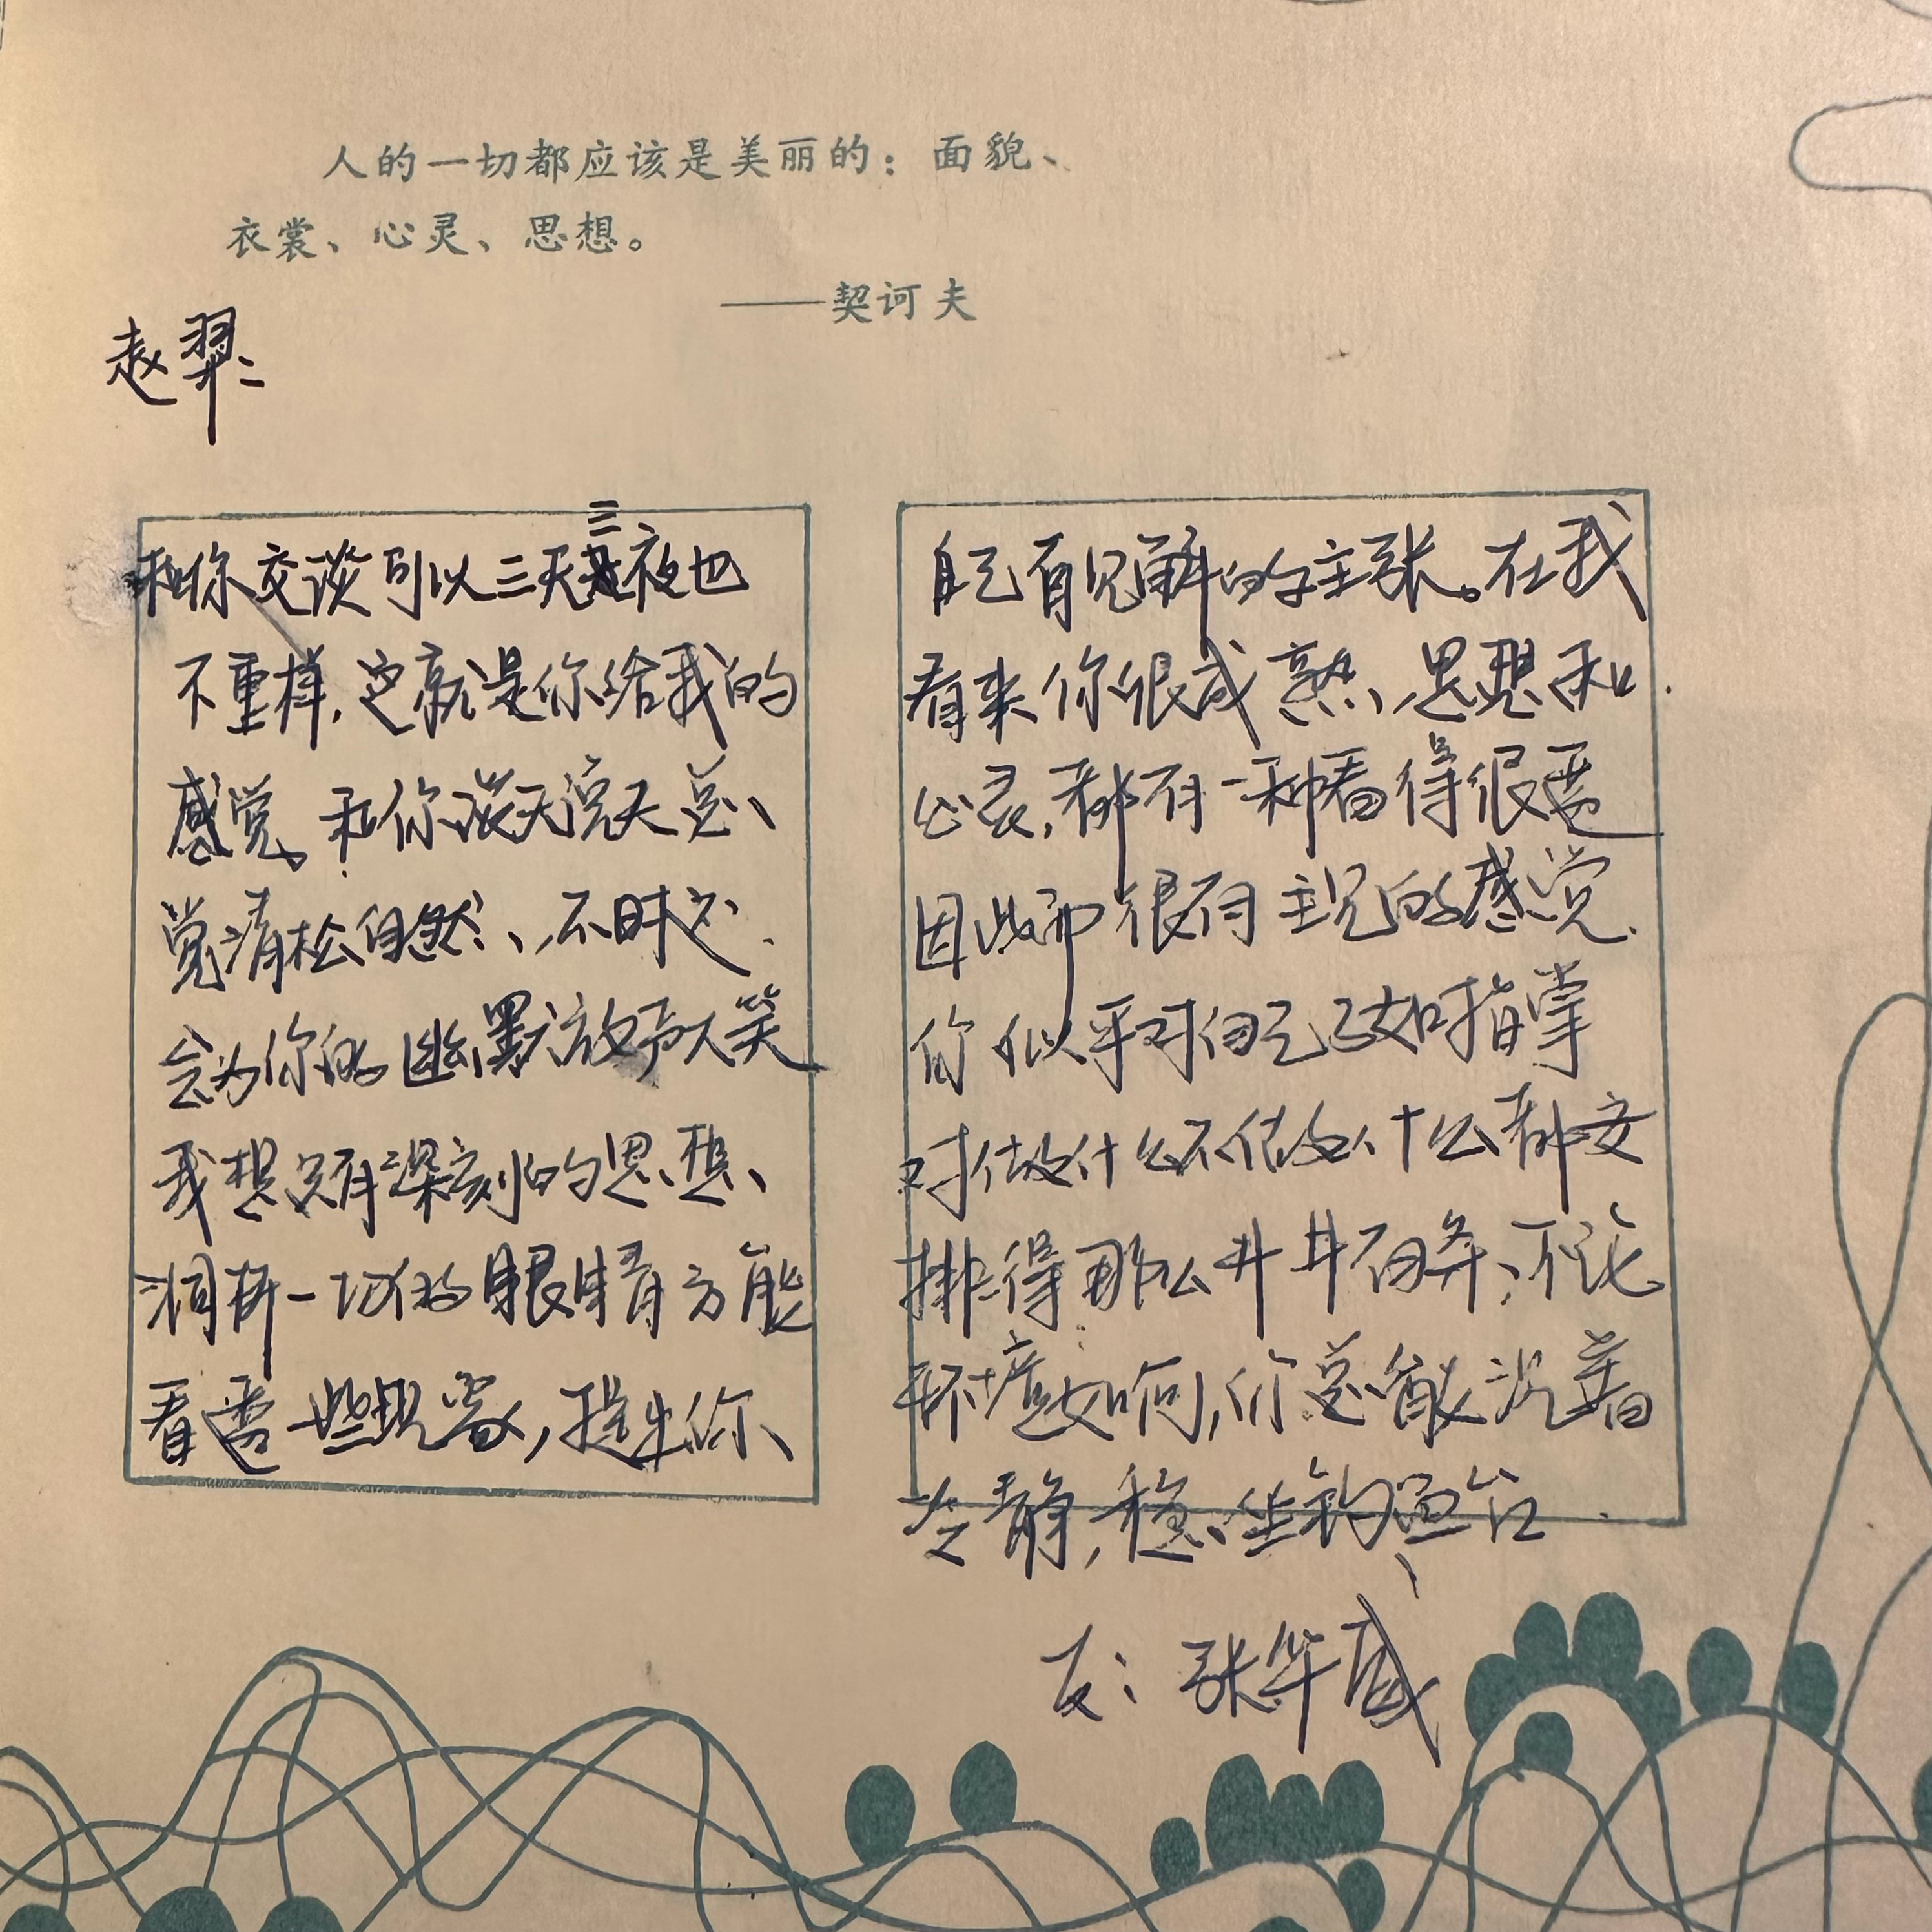 人的一切都应该是美丽的：面貌、
衣裳、心灵、思想。
——契诃夫
赵羿：
和你交谈可以三天三夜也
不重样，这就是你给我的
感觉。和你谈天说天总、
觉清松自然、，不时也
会为你的幽默放声大笑
我想只有深刻的思想、
洞析一切的眼睛方能
看透一些现象，提出你、
自己有见解的主张。在我
看来你很成熟、思想和
心灵，都有一种看得很透
因此而很有主见的感觉．
你似乎对自己了如指掌
对做什么不做什么都安
排得那么井井有条，不论
环境如何，你总能沉着
冷静，稳坐钓鱼台．
友：张华